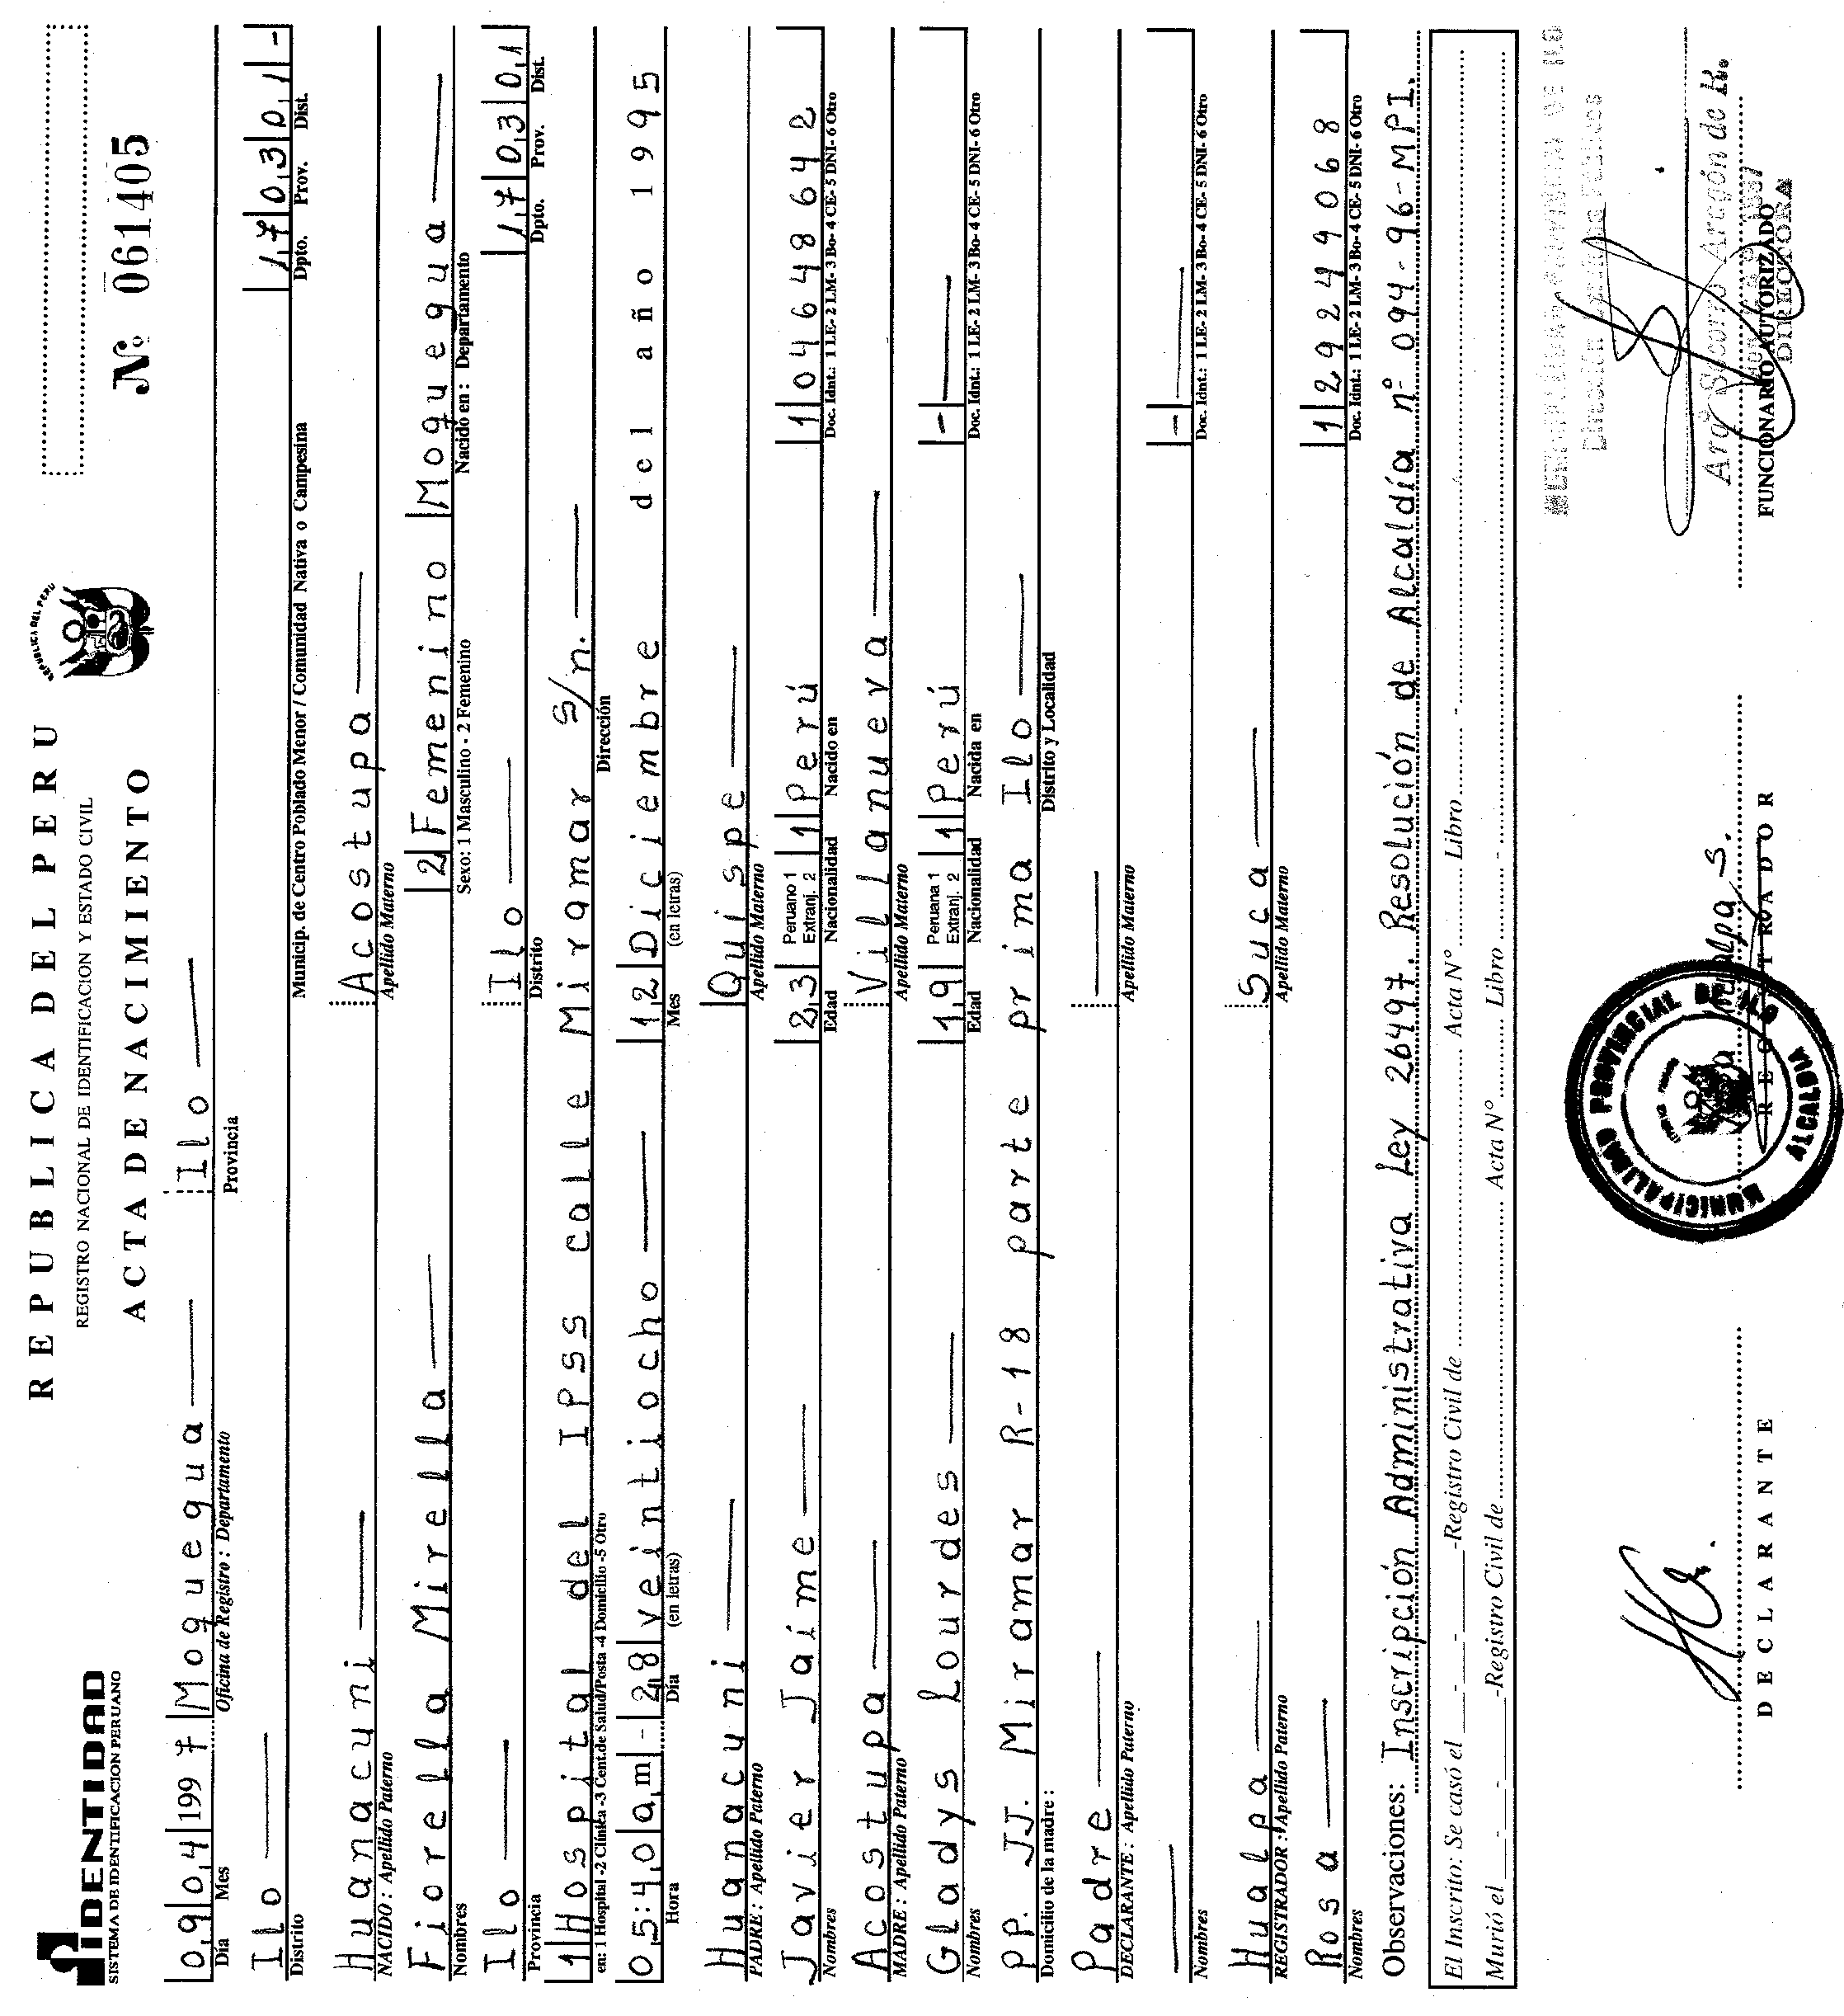 IDENTIDAD
SISTEMA DE IDENTIFICACION PERUANO
REPUBLICA DEL PERU
REPUBLICA DEL PERU
REGISTRO NACIONAL DE IDENTIFICACION Y ESTADO CIVIL
ACTA DE NACIMIENTO
Nº 061405
0,9 0,4 199 7 Moquegua Ilo
Día Mes Oficina de Registro : Departamento Provincia
Ilo 1,7 0,3 0,1 -
Distrito Municip. de Centro Poblado Menor / Comunidad Nativa o Campesina Dpto. Prov. Dist.
Huanacuni Acostupa
NACIDO : Apellido Paterno Apellido Materno
Fiorella Mirella 2 Femenino Moquegua
Nombres Sexo: 1 Masculino - 2 Femenino Nacido en : Departamento
Ilo Ilo 1,7 0,3 0,1
Provincia Distrito Dpto. Prov. Dist.
1 Hospital del IPSS calle Miramar s/n.
en: 1 Hospital -2 Clínica -3 Cent.de Salud/Posta -4 Domicilio -5 Otro Dirección
0,5:4,0 a,m - 2,8 veintiocho 1,2 Diciembre del año 1995
Hora Día (en letras) Mes (en letras)
Huanacuni Quispe
PADRE : Apellido Paterno Apellido Materno
Javier Jaime 2,3 Peruano 1 Extranj. 2 1 Perú 1 04648642
Nombres Edad Nacionalidad Nacido en Doc. Idnt.: 1 LE- 2 LM- 3 Bo- 4 CE- 5 DNI- 6 Otro
Acostupa Villanueva
MADRE : Apellido Paterno Apellido Materno
Gladys Lourdes 1,9 Peruana 1 Extranj. 2 1 Perú -
Nombres Edad Nacionalidad Nacida en Doc. Idnt.: 1 LE- 2 LM- 3 Bo- 4 CE- 5 DNI- 6 Otro
PP. JJ. Miramar R-18 parte prima Ilo
Domicilio de la madre : Distrito y Localidad
Padre
DECLARANTE : Apellido Paterno Apellido Materno
-
Nombres Doc. Idnt.: 1 LE- 2 LM- 3 Bo- 4 CE- 5 DNI- 6 Otro
Hualpa Suca
REGISTRADOR : Apellido Paterno Apellido Materno
Rosa 1 29249068
Nombres Doc. Idnt.: 1 LE- 2 LM- 3 Bo- 4 CE- 5 DNI- 6 Otro
Observaciones: Inscripción Administrativa Ley 26497. Resolución de Alcaldía nº 094-96-MPI.
El Inscrito: Se casó el - - -Registro Civil de Acta Nº Libro -
Murió el - - -Registro Civil de Acta Nº Libro -
MUNICIPALIDAD PROVINCIAL DE ILO
ALCALDIA
Hualpa S.
Arqº Socorro Aragón de R.
DIRECTORA
DECLARANTE REGISTRADOR FUNCIONARIO AUTORIZADO